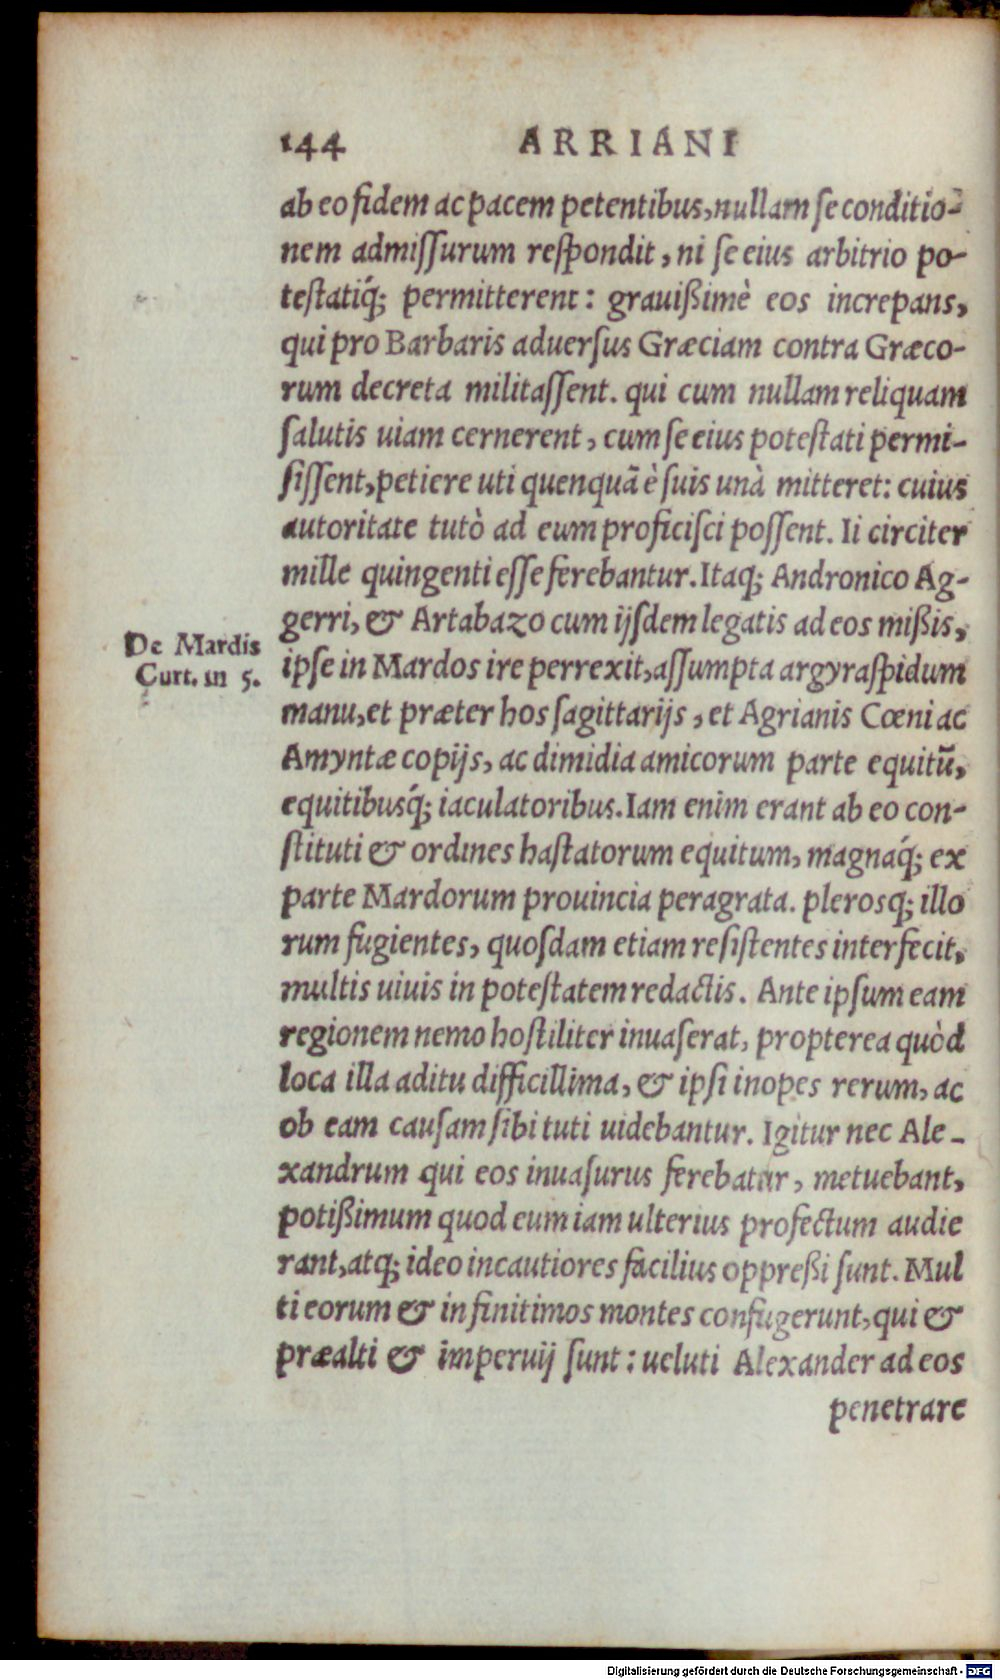 144 ARRIANI
ab eo fidem ac pacem petentibus, nullam se conditio-
nem admissurum respondit, ni se eius arbitrio po-
testatiq́; permitterent: grauißimè eos increpans,
qui pro Barbaris aduersus Græciam contra Græco-
rum decreta militassent. qui cum nullam reliquam
salutis uiam cernerent, cum se eius potestati permi-
sissent, petiere uti quenquã è suis unà mitteret: cuius
autoritate tutò ad eum proficisci possent. Ii circiter
mille quingenti esse ferebantur. Itaq; Andronico Ag-
gerri, & Artabazo cum ijsdem legatis ad eos mißis,
De Mardis
Curt. in 5.
ipse in Mardos ire perrexit, assumpta argyraspidum
manu, et præter hos sagittarijs, et Agrianis Cœni ac
Amyntæ copijs, ac dimidia amicorum parte equitũ,
equitibusq́; iaculatoribus. Iam enim erant ab eo con-
stituti & ordines hastatorum equitum, magnaq́; ex
parte Mardorum prouincia peragrata. plerosq; illo
rum fugientes, quosdam etiam resistentes interfecit,
multis uiuis in potestatem redactis. Ante ipsum eam
regionem nemo hostiliter inuaserat, propterea quòd
loca illa aditu difficillima, & ipsi inopes rerum, ac
ob eam causam sibi tuti uidebantur. Igitur nec Ale-
xandrum qui eos inuasurus ferebatur, metuebant,
potißimum quod eum iam ulterius profectum audie
rant, atq; ideo incautiores facilius oppreßi sunt. Mul
ti eorum & in finitimos montes confugerunt, qui &
præalti & imperuij sunt: ueluti Alexander ad eos
penetrare
Digitalisierung gefördert durch die Deutsche Forschungsgemeinschaft - DFG